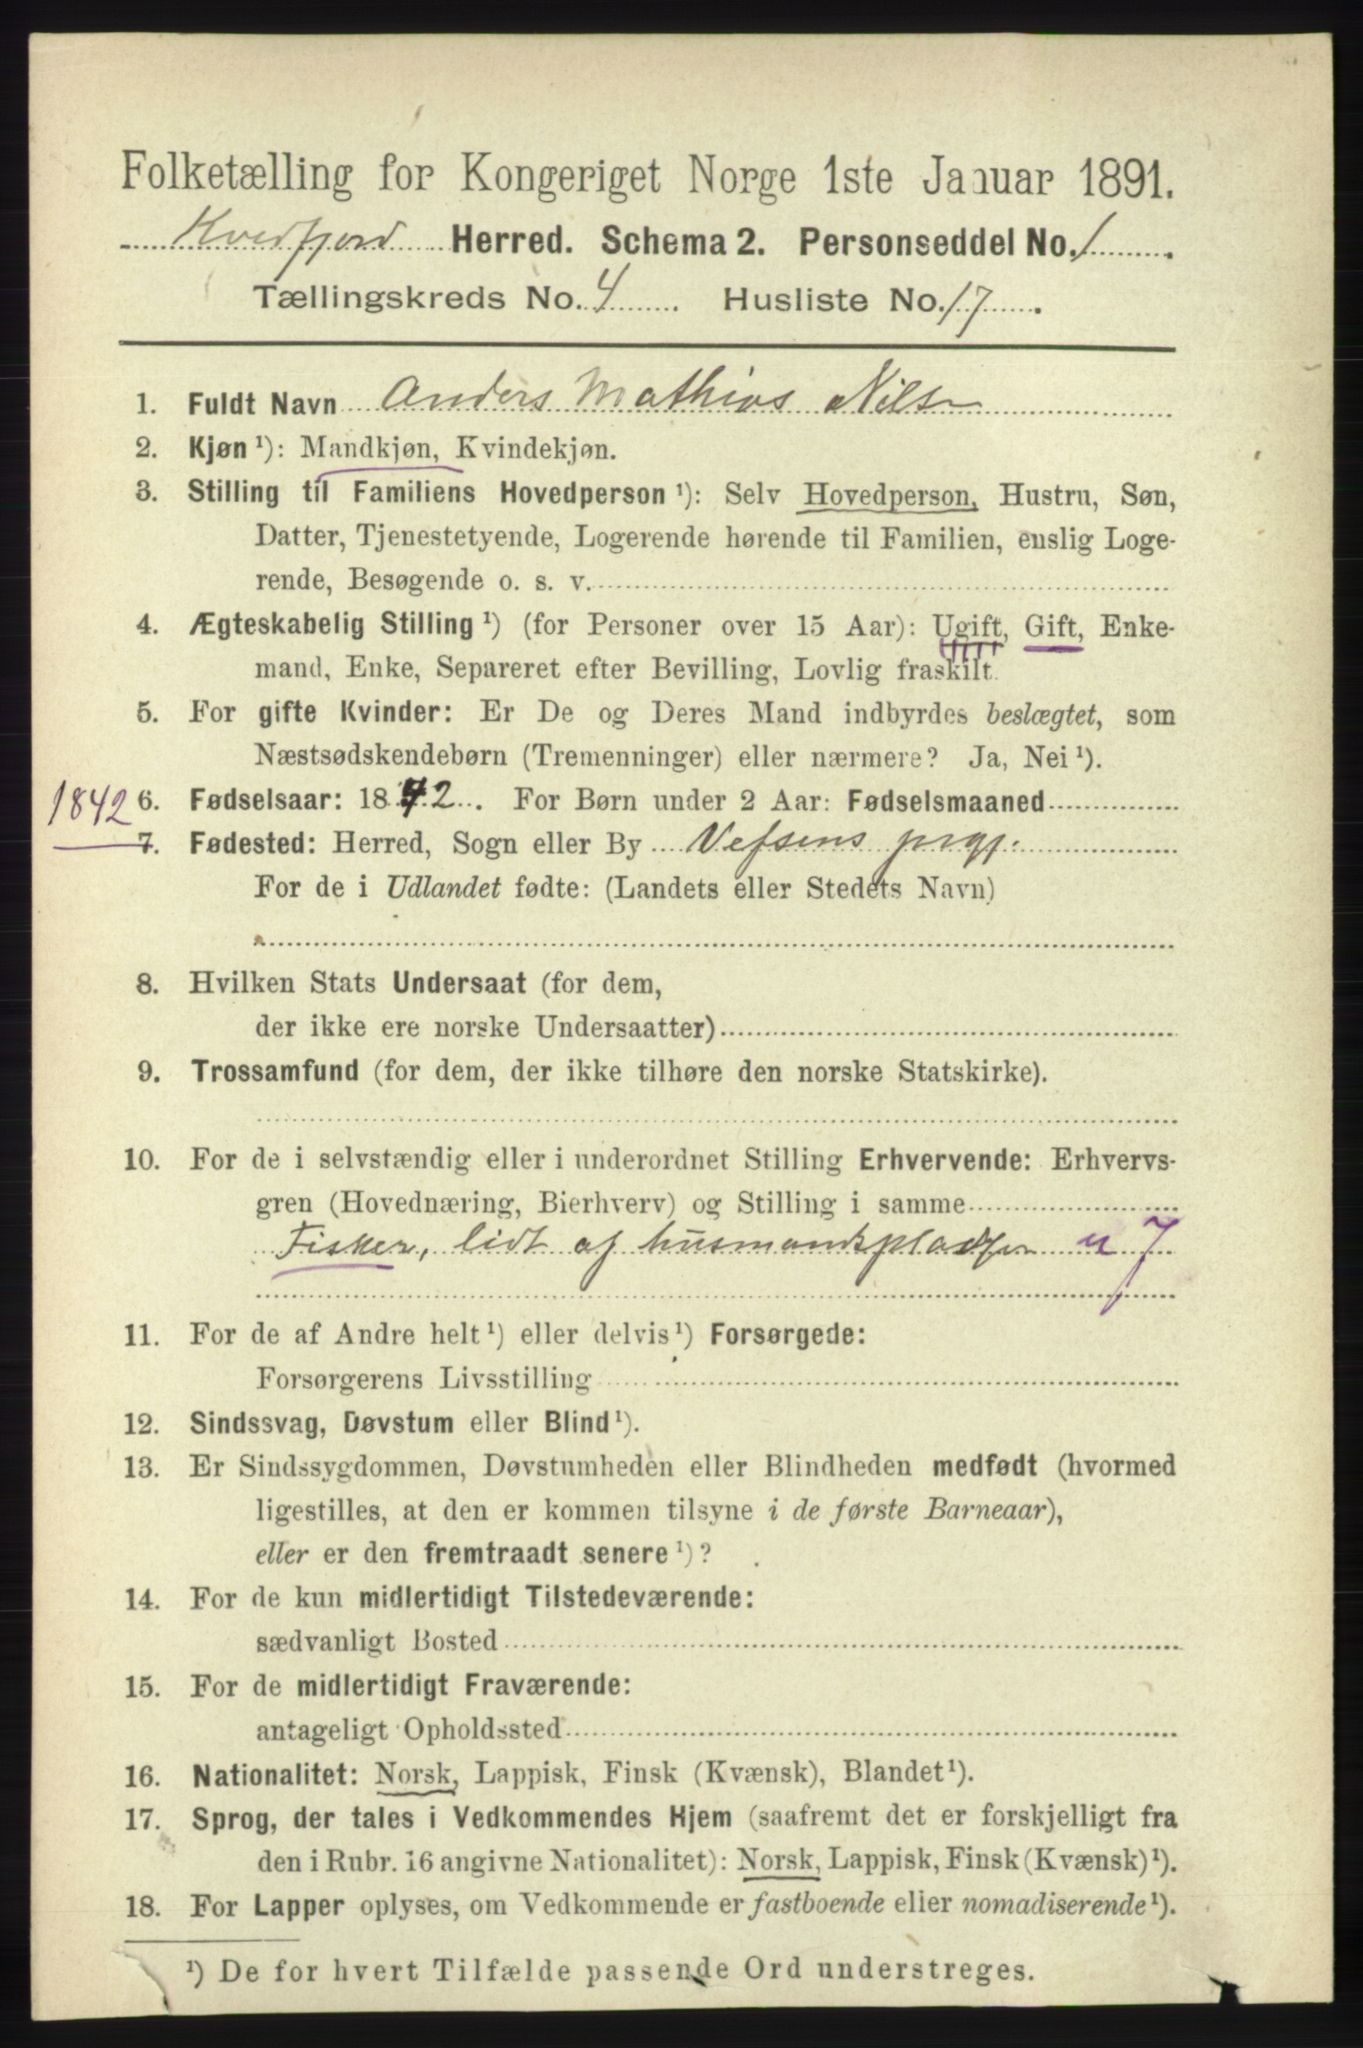 Folketælling for Kongeriget Norge 1ste Januar 1891.
Kvedfjord Herred. Schema 2. Personseddel No. 1.
Tællingskreds No. 4. Husliste No. 17.
1. Fuldt Navn Anders Mathias Nilsen
2. Kjøn ¹): Mandkjøn, Kvindekjøn.
3. Stilling til Familiens Hovedperson ¹): Selv Hovedperson, Hustru, Søn,
Datter, Tjenestetyende, Logerende hørende til Familien, enslig Loge-
rende, Besøgende o. s. v.
4. Ægteskabelig Stilling ¹) (for Personer over 15 Aar): Ugift, Gift, Enke-
mand, Enke, Separeret efter Bevilling, Lovlig fraskilt.
5. For gifte Kvinder: Er De og Deres Mand indbyrdes beslægtet, som
Næstsødskendebørn (Tremenninger) eller nærmere? Ja, Nei ¹).
1842 6. Fødselsaar: 1842. For Børn under 2 Aar: Fødselsmaaned
7. Fødested: Herred, Sogn eller By Vefsens prgj.
For de i Udlandet fødte: (Landets eller Stedets Navn)
8. Hvilken Stats Undersaat (for dem,
der ikke ere norske Undersaatter)
9. Trossamfund (for dem, der ikke tilhøre den norske Statskirke).
10. For de i selvstændig eller i underordnet Stilling Erhvervende: Erhvervs-
gren (Hovednæring, Bierhverv) og Stilling i samme
Fisker, lidt af husmandspladsen u 7
11. For de af Andre helt ¹) eller delvis ¹) Forsørgede:
Forsørgerens Livsstilling
12. Sindssvag, Døvstum eller Blind ¹).
13. Er Sindssygdommen, Døvstumheden eller Blindheden medfødt (hvormed
ligestilles, at den er kommen tilsyne i de første Barneaar),
eller er den fremtraadt senere ¹)?
14. For de kun midlertidigt Tilstedeværende:
sædvanligt Bosted
15. For de midlertidigt Fraværende:
antageligt Opholdssted
16. Nationalitet: Norsk, Lappisk, Finsk (Kvænsk), Blandet ¹).
17. Sprog, der tales i Vedkommendes Hjem (saafremt det er forskjelligt fra
den i Rubr. 16 angivne Nationalitet): Norsk, Lappisk, Finsk (Kvænsk) ¹).
18. For Lapper oplyses, om Vedkommende er fastboende eller nomadiserende ¹).
¹) De for hvert Tilfælde passende Ord understreges.